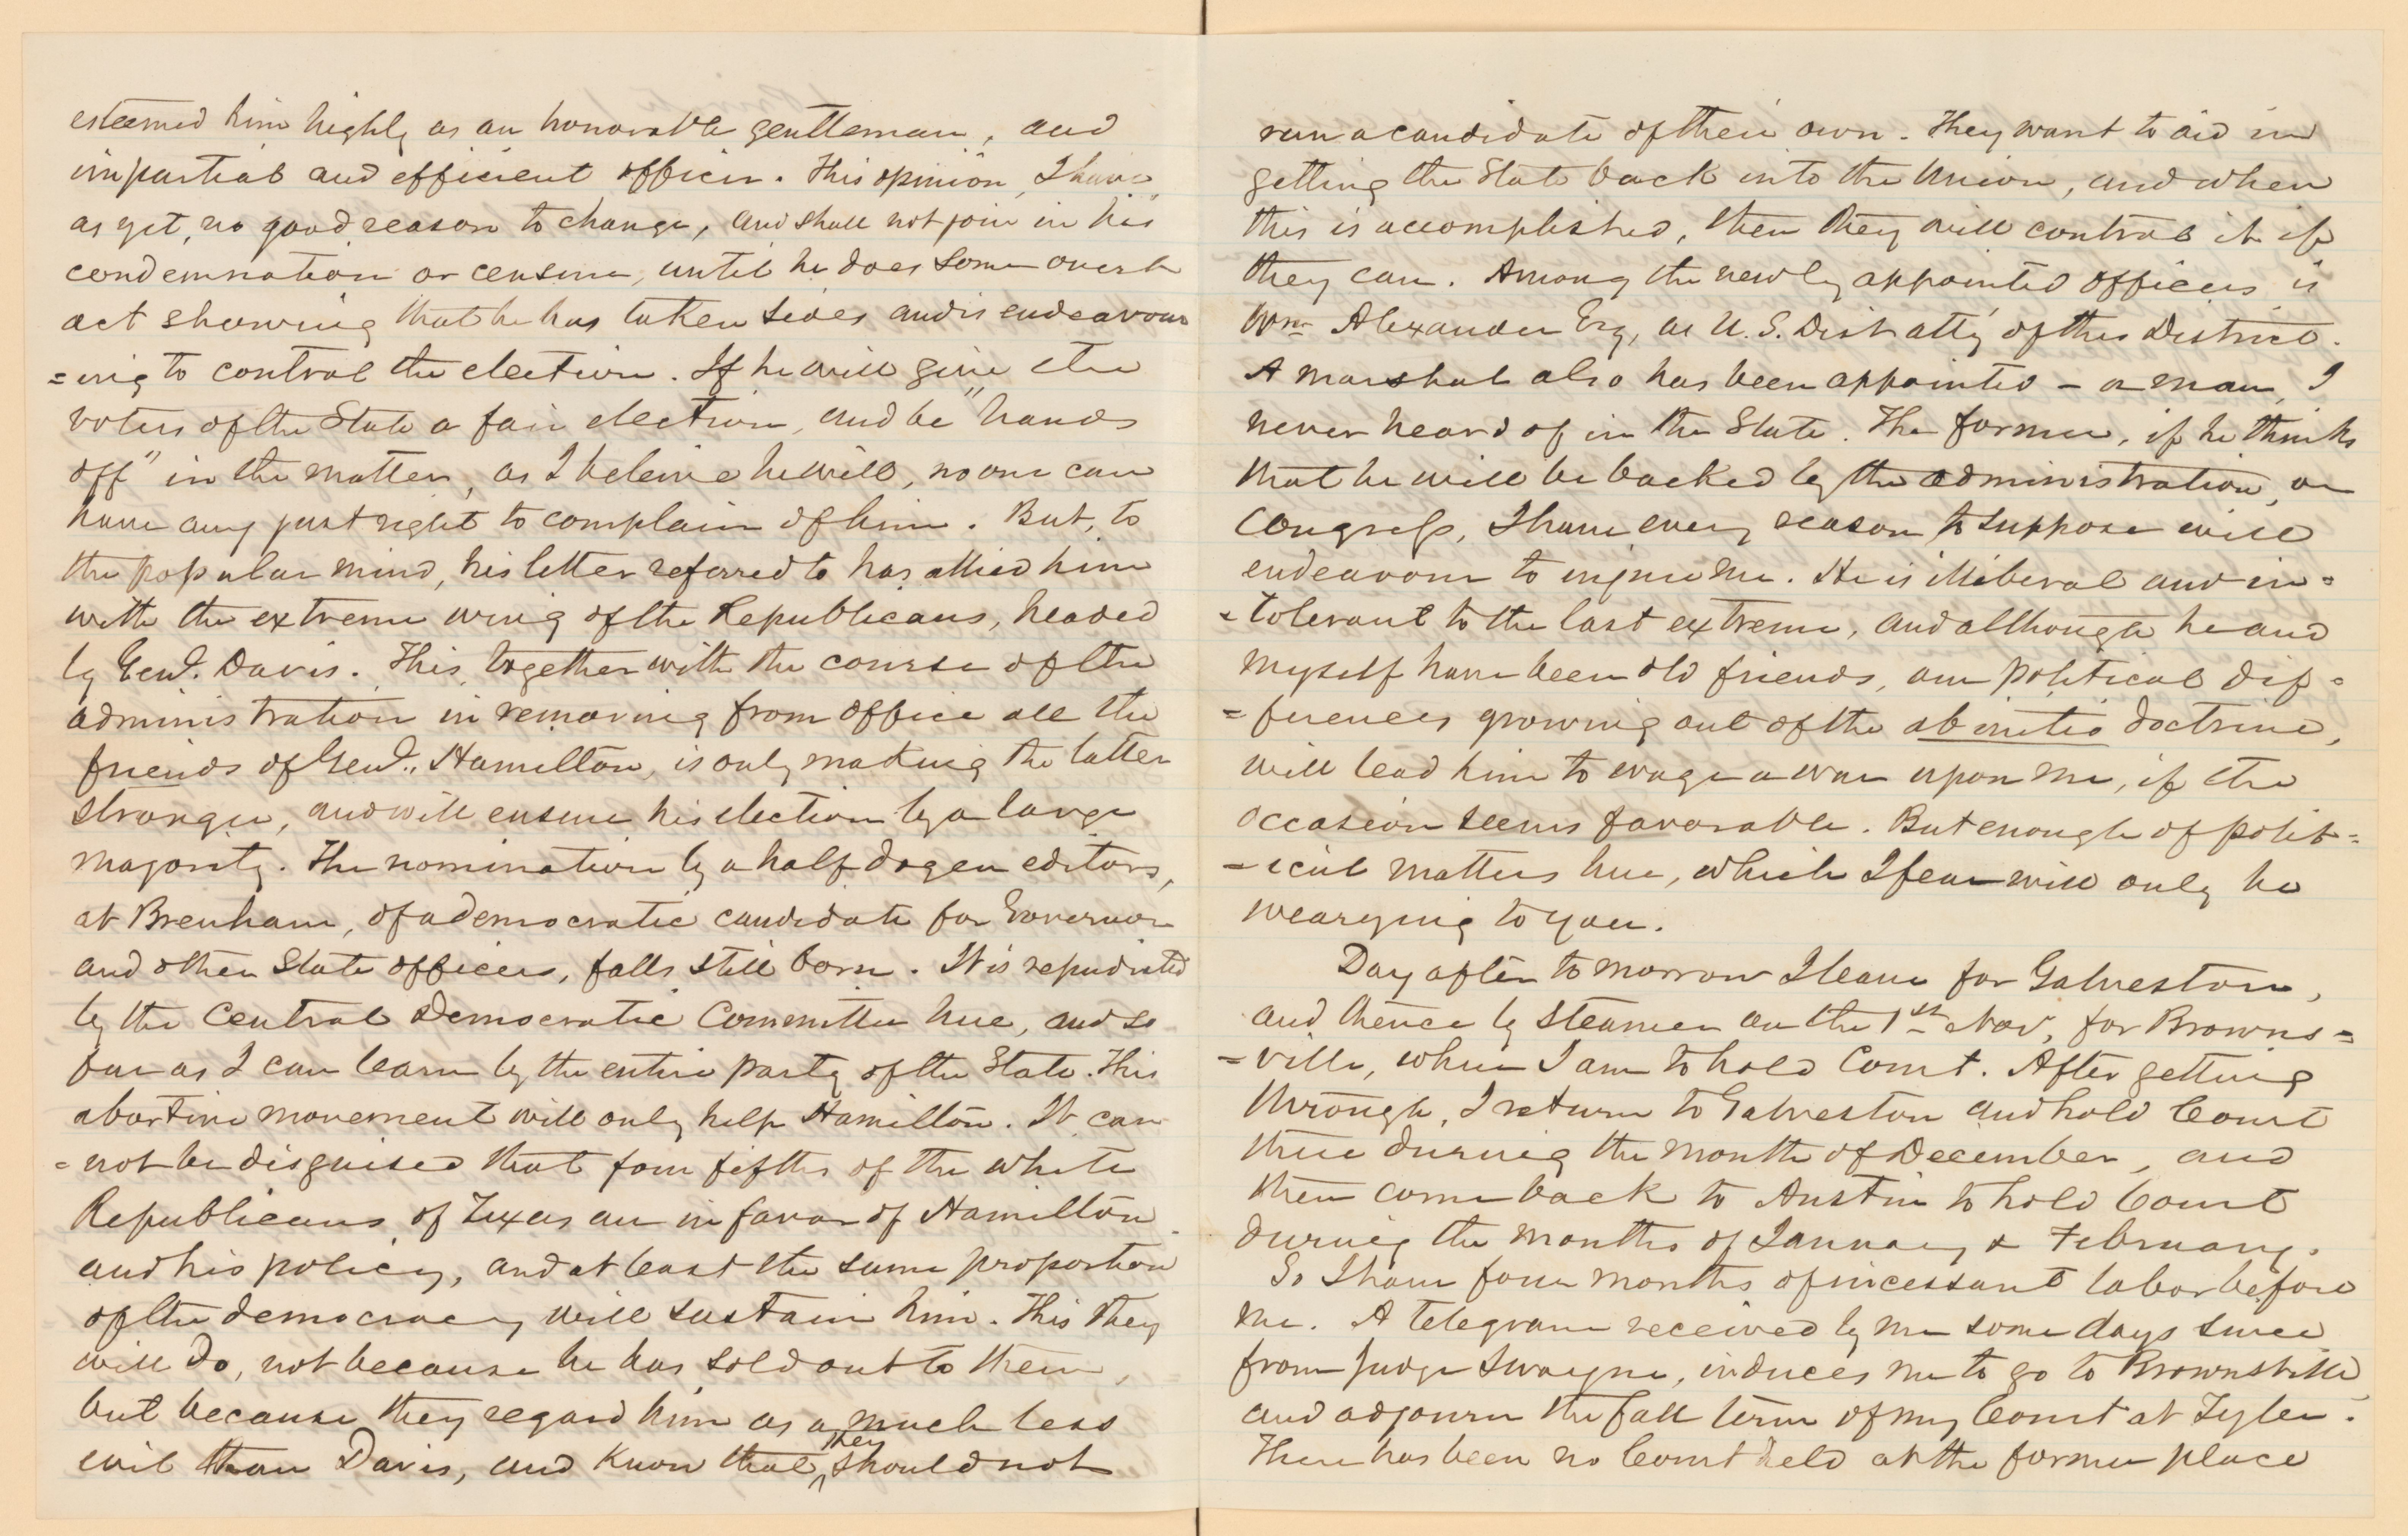 esteemed him highly as an honorable gentleman, and
impartial and efficient officer. This opinion, I have,
as yet, no good reason to change, and shall not join in his
condemnation or censure, until he does some overt
act showing that he has taken sides and is endeavour
=ing to control the election. If he will give the
voters of the State a fair election, and be "hands
off" in the matter, as I beleive he will, no one can
have any just right to complain of him. But, to
the popular mind, his letter referred to has allied him
with the extreme wing of the Republicans, headed
by Genl. Davis. This, together with the course of the
administration in removing from office all the
friends of Genl. Hamilton, is only making the latter
stronger, and will ensure his election by a large
majority. The nomination by a half dozen editors,
at Brenham, of a democratic candidate for Governor
and other State officers, falls still born. It is repudiated
by the Central Democratic Committee here, and so
far as I can learn by the entire party of the State. This
abortive movement will only help Hamilton. It can
=not be disguised that four fifths of the white
Republicans of Texas are in favor of Hamilton
and his policy, and at least the same proportion
of the democracy will sustain him. This they
will do, not because he has sold out to them,
but because they regard him as a much less
evil than Davis, and know that they should not
run a candidate of their own. They want to aid in
getting the State back into the Union, and when
this is accomplished, then they will control it if
they can. Among the newly appointed officers is
Wm Alexander Esq, as U.S. Dist atty of this District.
A marshal also has been appointed - a man I
never heard of in the State. The former, if he thinks
that he will be backed by the administration, or
Congress, I have every reason to suppose will
endeavour to injure me. He is illiberal and in=
=tolerant to the last extreme, and although he and
myself have been old friends, our political dif=
=ferences growing out of the ab initio doctrine,
will lead him to wage a war upon me, if the
occasion seems favorable. But enough of polit=
=ical matters here, which I fear will only be
wearying to you.
Day after tomorrow I leave for Galveston,
and thence by steamer on the 1st Nov, for Browns=
=ville, where I am to hold Court. After getting
through, I return to Galveston and hold Court
there during the month of December, and
then come back to Austin to hold Court
during the months of January & February.
So I have four months of incessant labor before
me. A telegram received by me some days since
from Judge Swayne, induces me to go to Brownsville
and adjourn the fall term of my Court at Tyler.
There has been no Court held at the former place